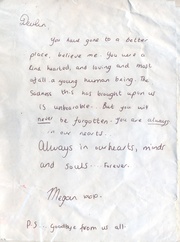 You have gone to a better
place, believe me. You were a
kind hearted, and loving and most
of all a young human being. The
sadness this has brought upon us
is unbearable. But you will
never be forgotten. You are always
in our hearts.
Always in our hearts, minds
and souls... forever.
Megan xxx.
P.S. Goodbye from us all.